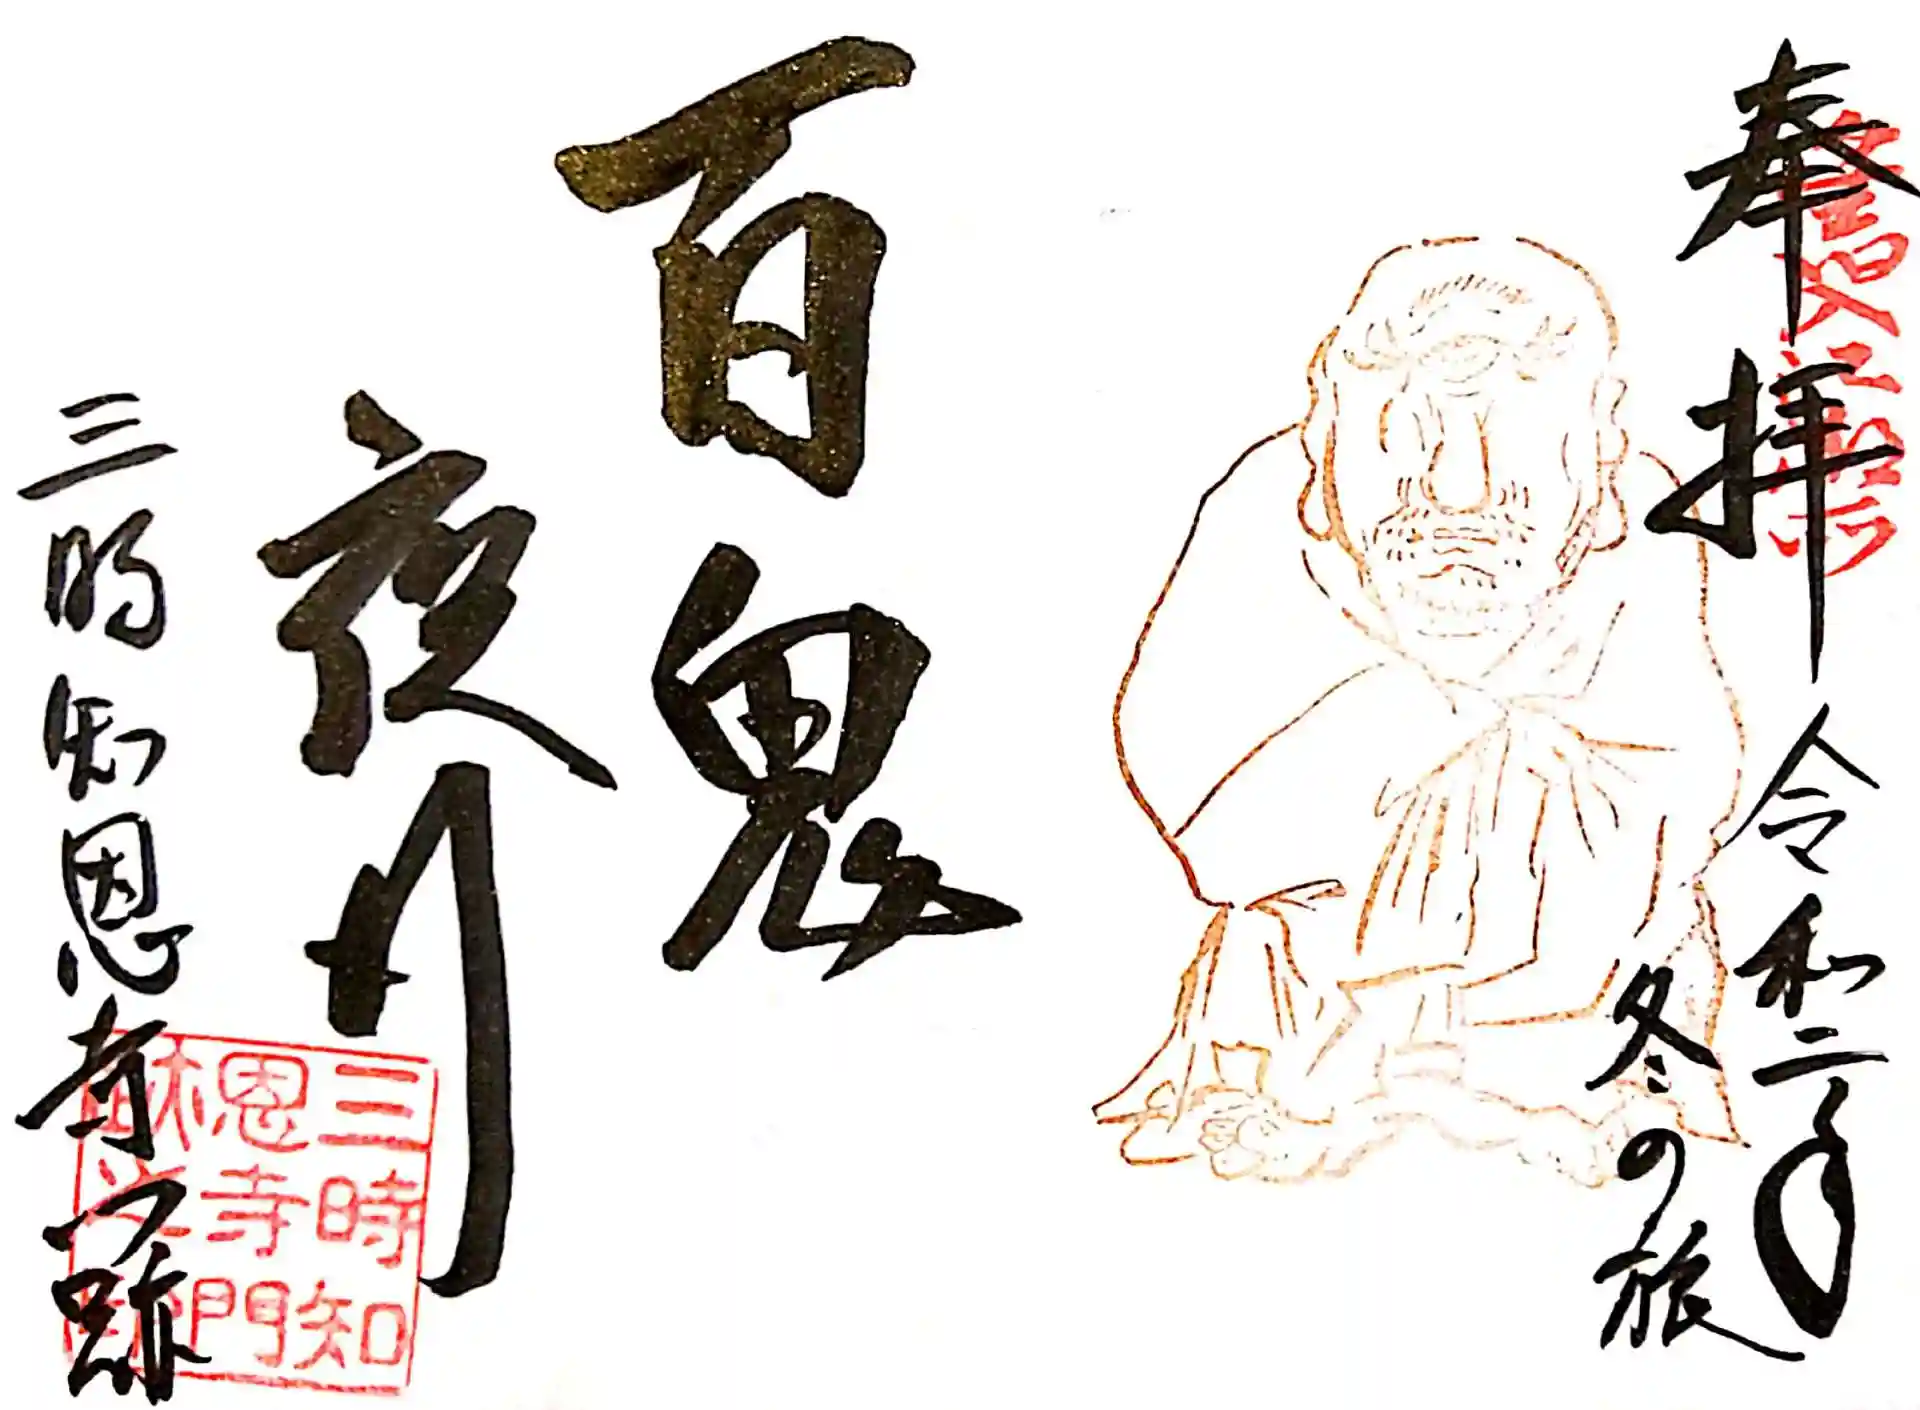 奉拝
令和二年
冬の旅
百鬼
夜行
三時知恩寺門跡
三時知
恩寺門
跡之